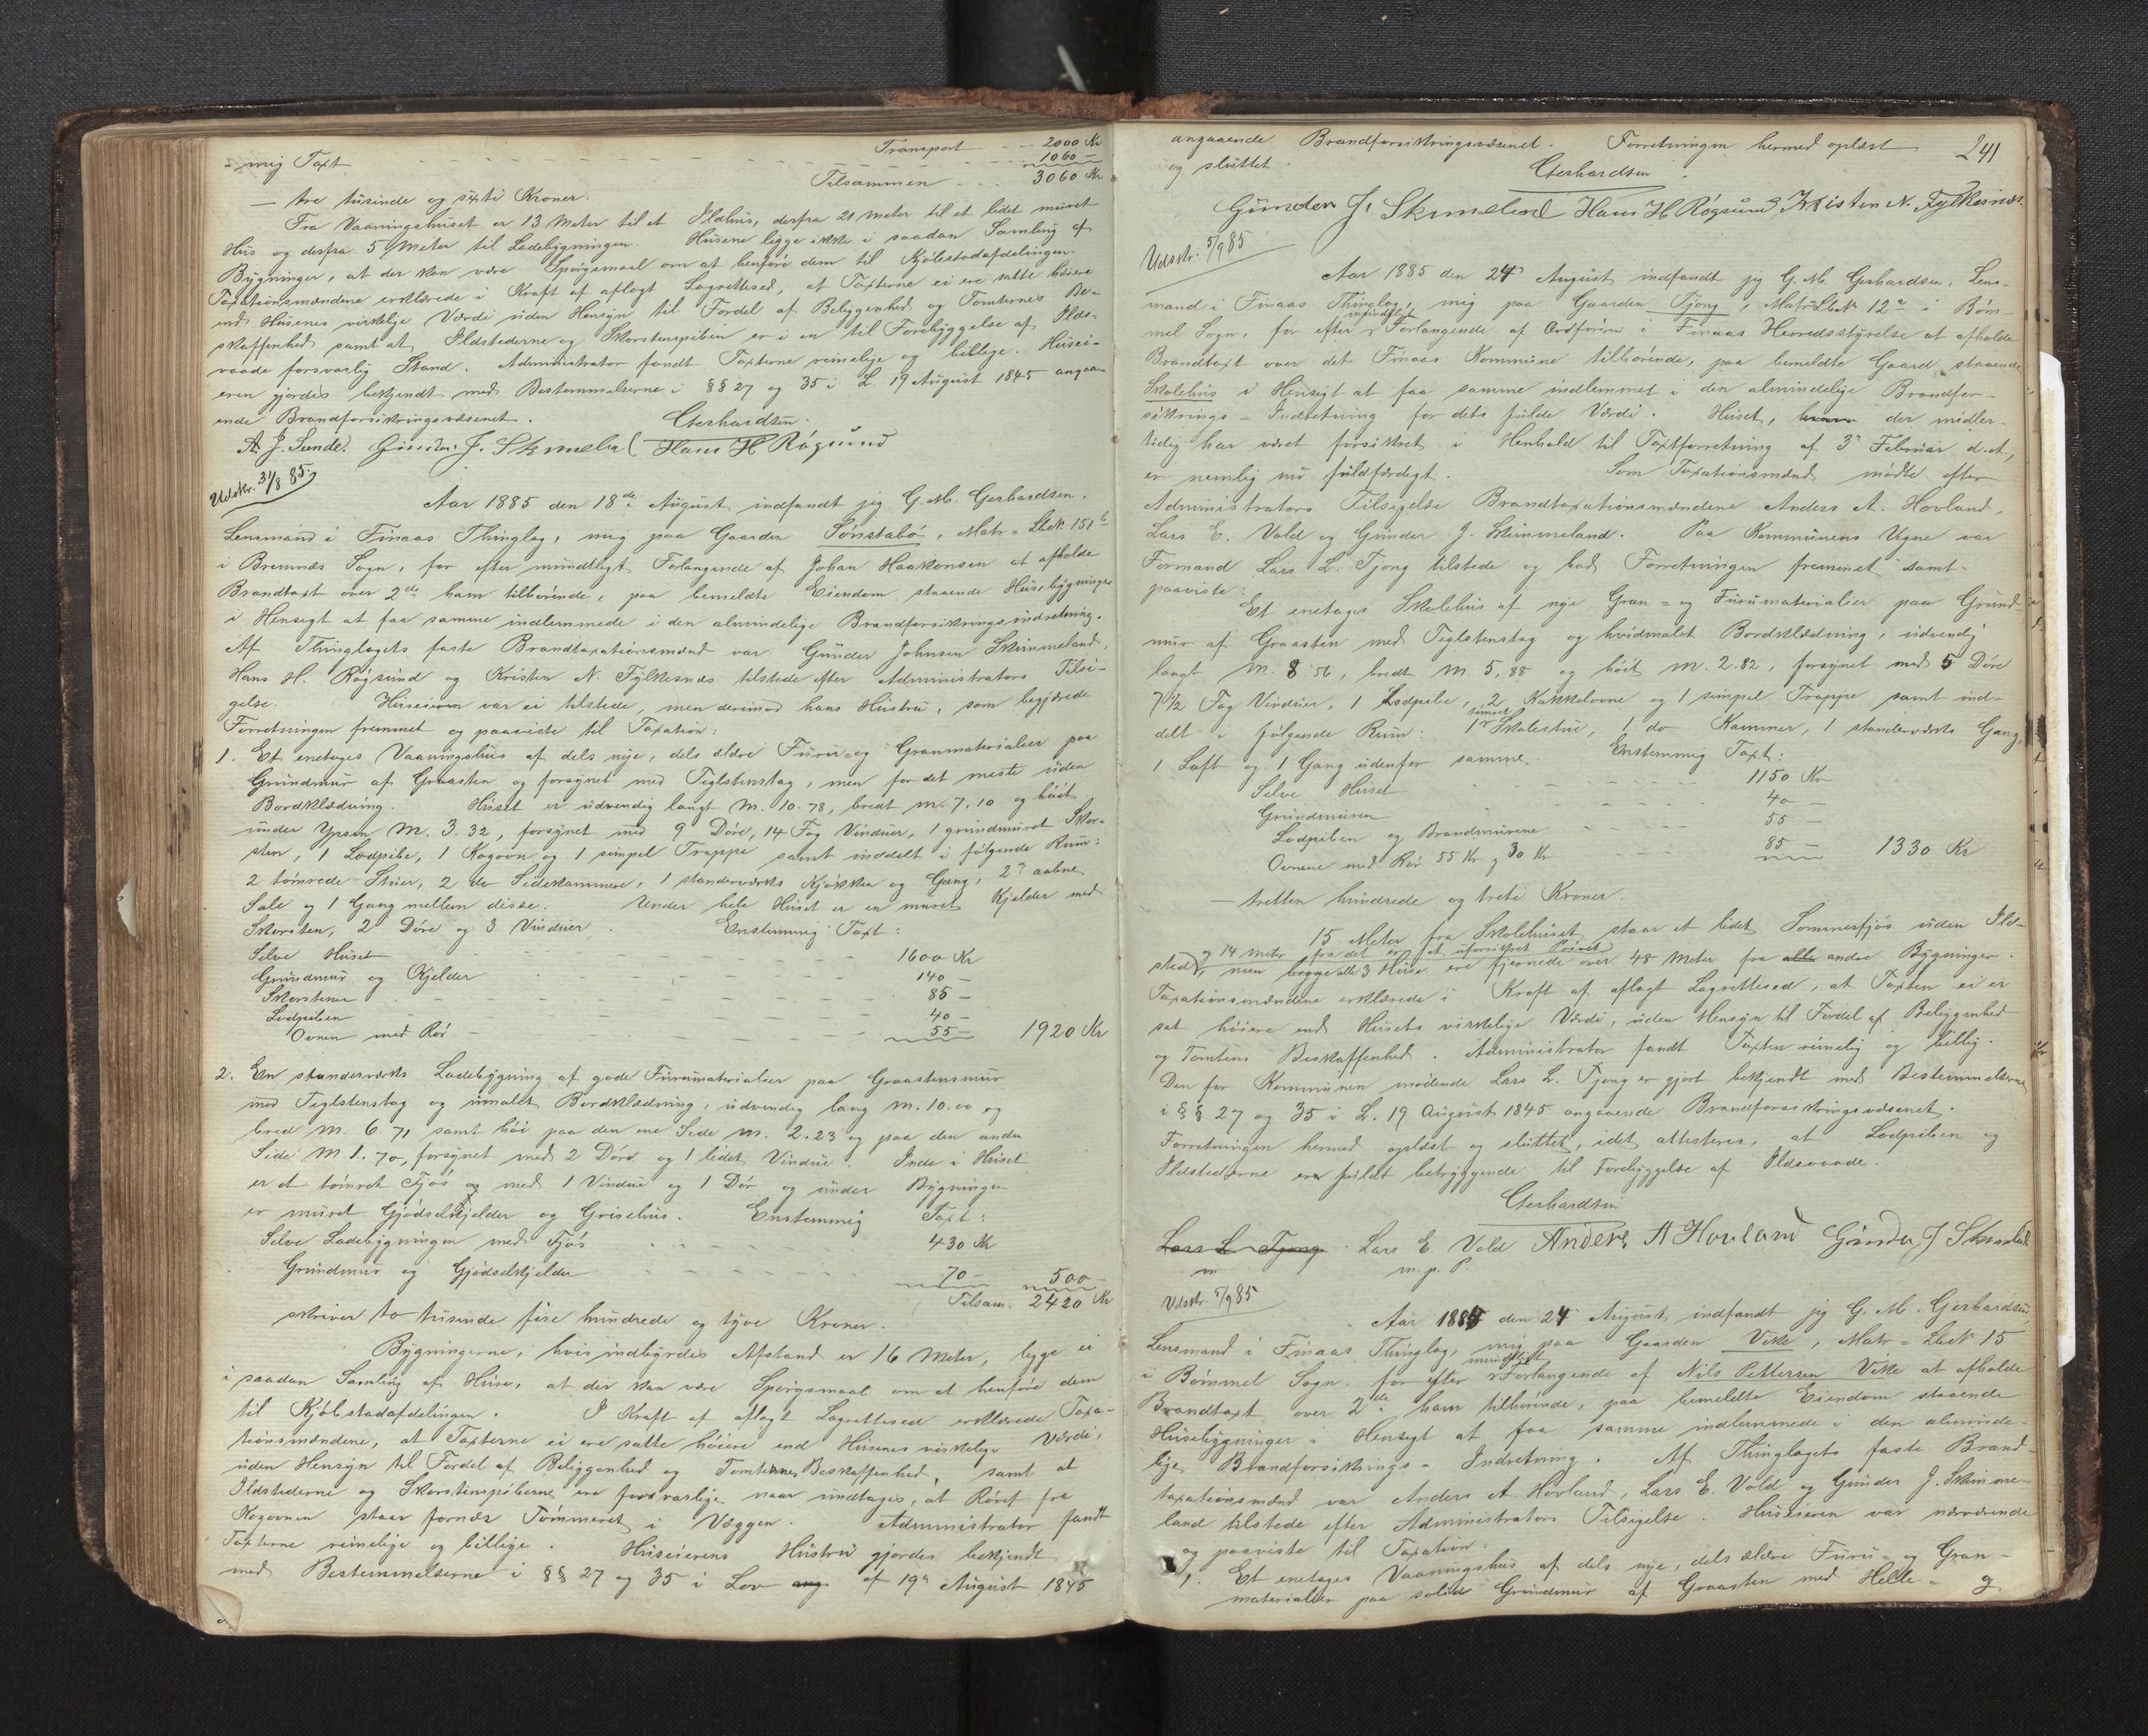 Transport - - 2000 Kr
= mig Taxt - - - - 1060 -
Tilsammen - - 3060 Kr
— tre tusinde og sexti Kroner.
Fra Vaaningshuset er 13 Meter til et Ildhus, derfra 21 Meter til et lidet muret
Hus og derfra 5 Meter til Ladebygningen. Husene ligge ikke i saadan Samling af
Bygninger, at der kan være Spørgsmaal om at henføre dem til Kjøbstadafdelingen.
Taxationsmændene erklærede i Kraft af aflagt Lagrettesed, at Taxterne ei ere satte høiere
end Husenes virkelige Værdi uden Hensyn til Fordel af Beliggenhed og Tomternes Be-
skaffenhed samt at Ildstederne og Skorstenspiben er i en til Forebyggelse af Ilds-
vaade forsvarlig Stand. Administrator fandt Taxterne rimelige og billige. Husei-
eren gjordes bekjendt med Bestemmelserne i §§ 27 og 35 i L. 19 August 1845 angaa-
ende Brandforsikringsvæsenet.
Gerhardsen.
A. J. Sunde. Gunder J. Skimeland Hans H Røgsund
Udskr. 31/8 85.
Aar 1885 den 18de August indfandt jeg G. M. Gerhardsen.
Lensmand i Finaas Thinglag, mig paa Gaarden Sønstabø, Matr = Lbek 151 b
i Bremnæs Sogn, for efter mundtligt Forlangende af Johan Haakonsen at afholde
Brandtaxt over 2de ham tilhørende, paa bemeldte Eiendom staaende Husebygninger
i Hensigt at faa samme indlemmede i den almindelige Brandforsikringsindretning.
Af Thinglagets faste Brandtaxationsmænd var Gunder Johnsen Skimmeland,
Hans H. Røgsund og Kristen N. Fylkesnæs tilstede efter Administrators Tilsi-
gelse. Huseieren var ei tilstede, men derimod hans Hustru, som begjærede
Forretningen fremmet og paaviste til Taxation:
1. Et enetages Vaaningshus af dels nye, dels ældre Furu- og Granmaterialier paa
Grundmur af Graasten og forsynet med Teglstenstag, men for det meste uden
Bordklædning. Huset er udvendig langt M. 10.78, bredt M. 7.10 og høit
under Ypsen M. 3.32, forsynet med 9 Døre, 14 Fag Vinduer, 1 grundmuret Skor-
sten, 1 Lodpibe, 1 Kogovn og 1 simpel Trappe samt inddelt i følgende Rum:
2 tømrede Stuer, 2 do Sidekammere, 1 standerværks Kjøkken og Gang, 2de aabne
Sale og 1 Gang mellem disse. Under hele Huset er en muret Kjelder med
Skorsten, 2 Døre og 3 Vinduer. Enstemmig Taxt:
Selve Huset - - - 1600 Kr
Grundmur og Kjelder - - - 140 -
Skorstenen - - - 85 -
Lodpiben - - - 40 -
Ovnen med Rør - - - 55 - 1920 Kr
2. En standerværks Ladebygning af gode Furumaterialier paa Graastensmur
med Teglstenstag og umalet Bordklædning, udvendig lang M. 10.00 og
bred M. 6.71 samt høi paa den ene Side M. 2.23 og paa den anden
Side M. 1.70, forsynet med 2 Døre og 1 lidet Vindue. Inde i Huset
er et tømret Fjøs med 1 Vindue og 1 Dør og under Bygningen
er muret Gjødselkjelder og Grisehus. Enstemmig Taxt:
Selve Ladebygningen med Fjøs - - - 430 Kr
Grundmur og Gjødselkjelder - - - 70 - 500 -
Tilsam. 2420 Kr
skriver to tusinde fire hundrede og tyve Kroner.
Bygningerne, hvis indbyrdes Afstand er 16 Meter, ligge ei
i saadan Samling af Huse, at der kan være Spørgsmaal om at henføre dem
til Kjøbstadafdelingen. I Kraft af aflagt Lagrettesed erklærede Taxa-
tionsmændene, at Taxterne ei ere satte høiere end Husenes virkelige Værdi,
uden Hensyn til Fordel af Beliggenhed og Tomternes Beskaffenhed, samt at
Ildstederne og Skorstenspiberne ere forsvarlige naar undtages, at Røret fra
Kogovnen staar fornær Tømmeret i Væggen. Administrator fandt
Taxterne rimelige og billige. Huseierens Hustru gjordes bekjendt
med Bestemmelserne i §§ 27 og 35 i Lov ang. af 19de August 1845
241
angaaende Brandforsikringsvæsenet. Forretningen hermed oplæst
og sluttet.
Gerhardsen
Gunder J. Skimeland Hans H Røgsund Kristen N. Fylkesnæs.
Udskr. 5/9 85
Aar 1885 den 24de August indfandt jeg G. M. Gerhardsen, Lens-
mand i Finaas Thinglag, mig paa Gaarden Tjong, Matr = Lbek 12 a i Bøm-
mel Sogn, for efter mundtligt Forlangende af Ordføreren i Finaas Herredsstyrelse at afholde
Brandtaxt over det Finaas Kommune tilhørende, paa bemeldte Gaard staaende
Skolehus i Hensigt at faa samme indlemmet i den almindelige Brandfor-
sikrings - Indretning for dets fulde Værdi. Huset, der midler-
tidig har været forsikret i Henhold til Taxtforretning af 3de Februar d.A.,
er nemlig nu fuldfærdigt. Som Taxationsmænd mødte efter
Administrators Tilsigelse Brandtaxationsmændene Anders A. Hovland,
Lars E. Vold og Gunder J. Skimmeland. Paa Kommunens Vegne var
Formand Lars L. Tjong tilstede og bad Forretningen fremmet samt
paaviste:
Et enetages Skolehus af nye Gran = og Furumaterialier paa Grund-
mur af Graasten med Teglstenstag og hvidmalet Bordklædning, udvendig
langt M. 8.56, bredt M. 5,88 og høit M. 2.82, forsynet med 5 Døre
7 1/2 Fag Vinduer, 1 Lodpibe, 2 Kakkelovne og 1 simpel Trappe samt ind-
delt i følgende Rum: 1 tømret Skolestue, 1 do Kammer, 1 standerværks Gang,
1 Loft og 1 Gang udenfor samme. Enstemmig Taxt:
Selve Huset - - - 1150 Kr
Grundmuren - - - 40 -
Lodpiben og Brandmurene - - - 55 -
Ovnene med Rør 55 Kr og 30 Kr - - - 85 - 1330 Kr
— tretten hundrede og treti Kroner.
15 Meter fra Skolehuset staar et lidet Sommerfjøs uden Ild-
sted, og 14 Meter fra det er et uforsikret
men alle 3 Huse ere fjernede over 48 Meter fra alle andre Bygninger.
Taxationsmændene erklærede i Kraft af aflagt Lagrettesed, at Taxten ei er
sat høiere end Husets virkelige Værdi, uden Hensyn til Fordel af Beliggenhed
og Tomtens Beskaffenhed. Administrator fandt Taxten rimelig og billig.
Den for Kommunen mødende Lars L. Tjong er gjort bekjendt med Bestemmelserne
i §§ 27 og 35 i L. 19 August 1845 angaaende Brandforsikringsvæsenet.
Forretningen hermed oplæst og sluttet, idet attesteres, at Lodpiben og
Ildstederne er fuldt betryggende til Forebyggelse af Ildsvaade.
Gerhardsen
Lars L. Tjong Lars E. Vold Anders A Hovland Gunder J Skimeland
m. p. P.
Udskr. 5/9 85
Aar 1885 den 24 August, indfandt jeg G. M. Gerhardsen,
Lensmand i Finaas Thinglag, mig paa Gaarden Vike, Matr = Lbek 15
i Bømmel Sogn, for efter mundtligt Forlangende af Nils Pettersen Vike at afholde
Brandtaxt over 2de ham tilhørende, paa bemeldte Eiendom staaende
Husebygninger i Hensigt at faa samme indlemmede i den alminde-
lige Brandforsikrings - Indretning. Af Thinglagets faste Brand-
taxationsmænd var Anders A. Hovland, Lars E. Vold og Gunder J. Skimme-
land tilstede efter Administrators Tilsigelse. Huseieren var nærværende
og paaviste til Taxation:
1. Et enetages Vaaningshus af dels nye, dels ældre Furu = og Gran-
materialier paa solid Grundmur af Graasten med Helle = og